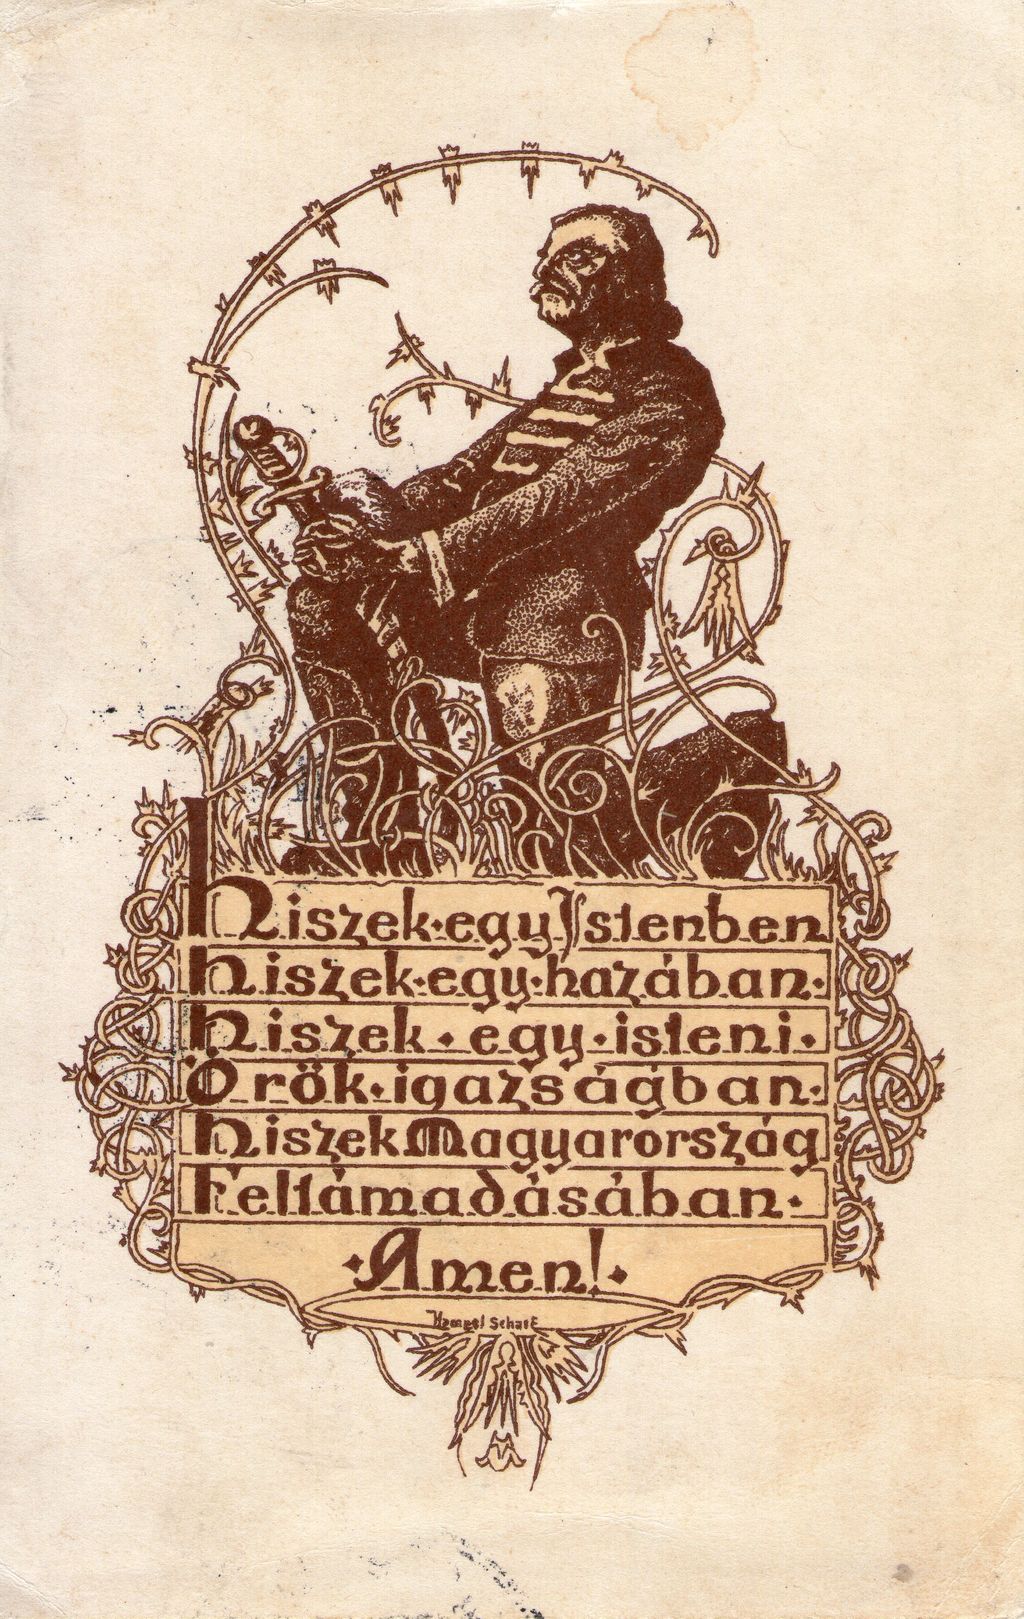 Hiszek egy Istenben
Hiszek egy hazában
Hiszek egy isteni
Örök igazságban
Hiszek Magyarország
Feltámadásában
Amen!